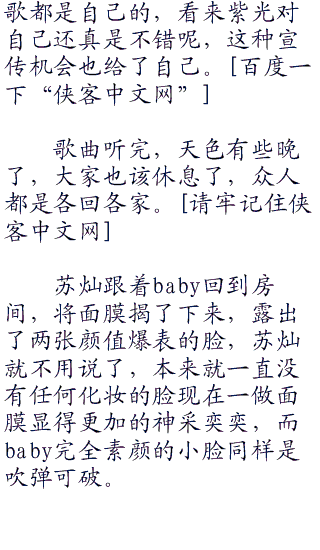 歌都是自己的，看来紫光对
自己还真是不错呢，这种宣
传机会也给了自己。[百度一
下“侠客中文网”]
歌曲听完，天色有些晚
了，大家也该休息了，众人
都是各回各家。[请牢记住侠
客中文网]
苏灿跟着baby回到房
间，将面膜揭了下来，露出
了两张颜值爆表的脸，苏灿
就不用说了，本来就一直没
有任何化妆的脸现在一做面
膜显得更加的神采奕奕，而
baby完全素颜的小脸同样是
吹弹可破。